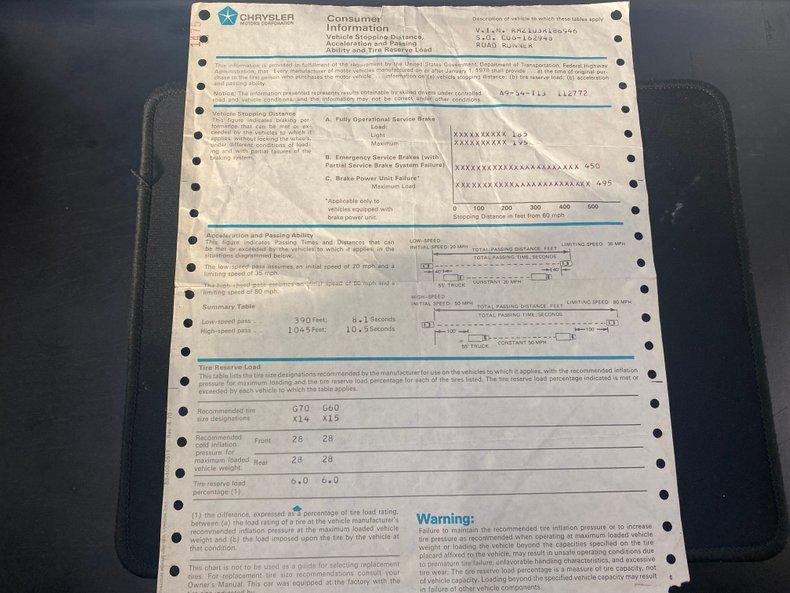 CHRYSLER
MOTORS CORPORATION
Consumer
Information
Vehicle Stopping Distance,
Acceleration and Passing
Ability and Tire Reserve Load
Description of vehicle to which these tables apply
V.I.N.
S.O.
ROAD RUNNER
This information is provided in fulfillment of the requirement by the United States Government, Department of Transportation, Federal Highway
Administration, that "Every manufacturer of motor vehicles manufactured on or after January 1, 1970 shall provide ... at the time of original pur-
chase to the first person who purchases the motor vehicle ... information on (a) vehicle stopping distance: (b) tire reserve load; (c) acceleration
and passing ability.
Notice: The information presented represents results obtainable by skilled drivers under controlled
road and vehicle conditions, and the information may not be correct under other conditions.
A9-54-T13 112772
Vehicle Stopping Distance
This figure indicates braking per-
formance that can be met or ex-
ceeded by the vehicles to which it
applies, without locking the wheels,
under different conditions of load-
ing and with partial failures of the
braking system.
A. Fully Operational Service Brake
Load:
Light XXXXXXXXXX 185
Maximum XXXXXXXXXX 195
B. Emergency Service Brakes (with
Partial Service Brake System Failure)
450
C. Brake Power Unit Failure*
Maximum Load
495
*Applicable only to
vehicles equipped with
brake power unit.
0 100 200 300 400 500
Stopping Distance in feet from 60 mph
Acceleration and Passing Ability
This figure indicates Passing Times and Distances that can
be met or exceeded by the vehicles to which it applies, in the
situations diagrammed below.
The low-speed pass assumes an initial speed of 20 mph and a
limiting speed of 35 mph.
The high-speed pass assumes an initial speed of 50 mph and a
limiting speed of 80 mph.
Summary Table
Low-speed pass 390 Feet; 8.1 Seconds
High-speed pass 1045 Feet; 10.5 Seconds
LOW-SPEED
INITIAL SPEED: 20 MPH
TOTAL PASSING DISTANCE, FEET
LIMITING SPEED: 35 MPH
TOTAL PASSING TIME, SECONDS
40' 40'
55' TRUCK CONSTANT 20 MPH
HIGH-SPEED
INITIAL SPEED: 50 MPH
TOTAL PASSING DISTANCE, FEET
LIMITING SPEED: 80 MPH
TOTAL PASSING TIME, SECONDS
100' 100'
55' TRUCK CONSTANT 50 MPH
Tire Reserve Load
This table lists the tire size designations recommended by the manufacturer for use on the vehicles to which it applies, with the recommended inflation
pressure for maximum loading and the tire reserve load percentage for each of the tires listed. The tire reserve load percentage indicated is met or
exceeded by each vehicle to which the table applies.
Recommended tire
size designations
G70 G60
X14 X15
Recommended
cold inflation
pressure for
maximum loaded
vehicle weight:
Front 28 28
Rear 28 28
Tire reserve load
percentage (1)
6.0 6.0
(1) the difference, expressed as a percentage of tire load rating,
between (a) the load rating of a tire at the vehicle manufacturer's
recommended inflation pressure at the maximum loaded vehicle
weight and (b) the load imposed upon the tire by the vehicle at
that condition.
This chart is not to be used as a guide for selecting replacement
tires. For replacement tire size recommendations consult your
Owner's Manual. This car was equipped at the factory with the
Warning:
Failure to maintain the recommended tire inflation pressure or to increase
tire pressure as recommended when operating at maximum loaded vehicle
weight or loading the vehicle beyond the capacities specified on the tire
placard affixed to the vehicle, may result in unsafe operating conditions due
to premature tire failure, unfavorable handling characteristics, and excessive
tire wear. The tire reserve load percentage is a measure of tire capacity, not
of vehicle capacity. Loading beyond the specified vehicle capacity may result
in failure of other vehicle components.